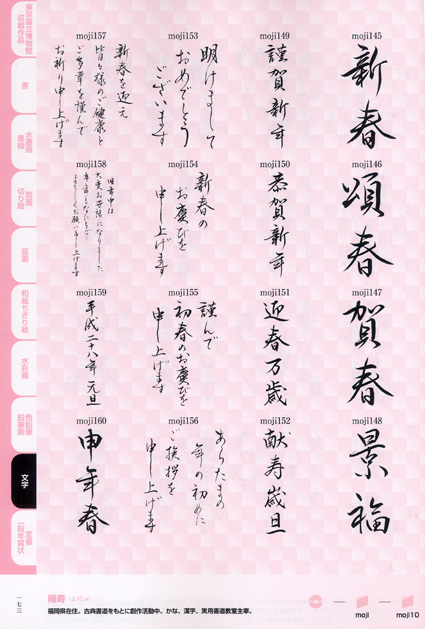 moji145
新春
moji146
頌春
moji147
賀春
moji148
景福
moji149
謹賀新年
moji150
恭賀新年
moji151
迎春万歳
moji152
献寿歳旦
moji153
明けまして
おめでとう
ございます
moji154
新春の
お慶びを
申し上げます
moji155
謹んで
初春のお慶びを
申し上げます
moji156
あらたまの
年の初めに
ご挨拶を
申し上げます
moji157
新春を迎え
皆々様のご健康と
ご多幸を謹んで
お祈り申し上げます
moji158
旧年中は
大変お世話になりました
よろしくお願い申し上げます
moji159
平成二十八年 元旦
moji160
申年春
東京国立博物館
収蔵作品
書
水墨画
墨絵
切り絵
版画
和紙ちぎり絵
水彩画
色鉛筆
鉛筆画
文字
定番
一般年賀状
一七三
陽寿(ようじゅ)
福岡県在住。古典書道をもとに創作活動中。かな、漢字、実用書道教室主宰。
moji
moji10